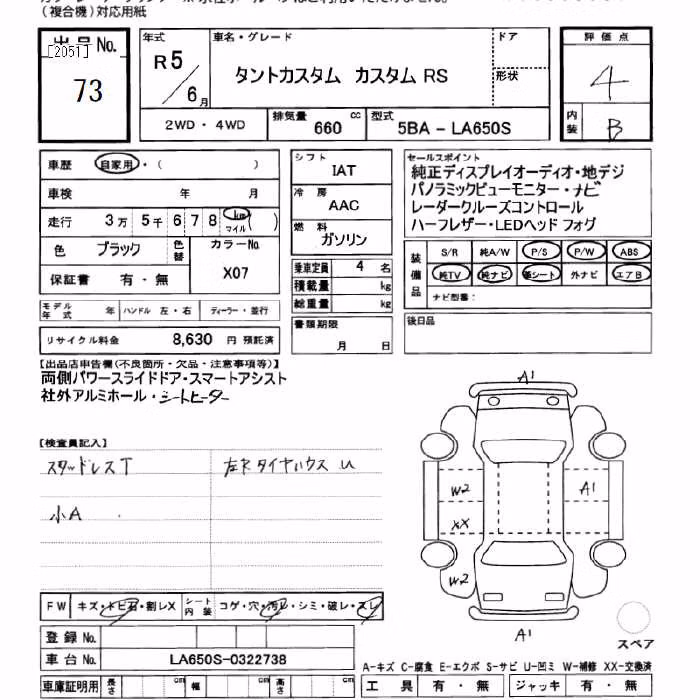 （複合機）対応用紙
出品No.
[2051]
73
年式
R5/6月
車名・グレード
タントカスタム カスタムRS
ドア
形状
評価点
4
内装
B
2WD・4WD
排気量 660 cc
型式 5BA－LA650S
車歴 自家用・（ ）
車検 年 月
走行 3万 5千 6 7 8 km マイル ( )
色 ブラック 色替 カラーNo. X07
保証書 有・無
シフト IAT
冷房 AAC
燃料 ガソリン
乗車定員 4 名
積載量 kg
総重量 kg
書類期限 月 日
セールスポイント
純正ディスプレイオーディオ・地デジ
パノラミックビューモニター・ナビ
レーダークルーズコントロール
ハーフレザー・LEDヘッド フォグ
装備品
S/R 純A/W P/S P/W ABS
純TV 純ナビ 革シート 外ナビ エアB
ナビ型番：
後日品
モデル年式 年 ハンドル 左・右 ディーラー・並行
リサイクル料金 8,630 円 預託済
【出品店申告欄(不良箇所・欠品・注意事項等)】
両側パワースライドドア・スマートアシスト
社外アルミホール・シートヒーター
【検査員記入】
スタッドレスT
左Rタイヤハウス U
小A
A1
W2
A1
XX
W2
A1
スペア
FW キズ・トビ石・割レX シート内装 コゲ・穴・汚レ・シミ・破レ・スレ
登録No.
車台No. LA650S-0322738
車庫証明用 長さ cm 幅 cm 高さ cm
A-キズ C-腐食 E-エクボ S-サビ U-凹ミ W-補修 XX-交換済
工具 有・無 ジャッキ 有・無